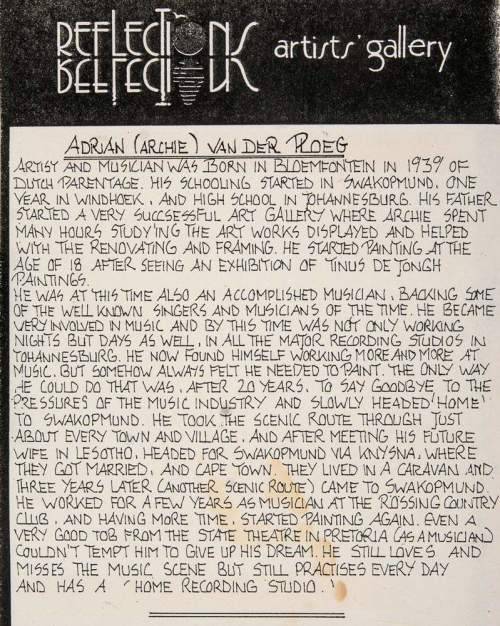 REFLECTIONS artists' gallery
ADRIAN (ARCHIE) VAN DER PLOEG
ARTIST AND MUSICIAN WAS BORN IN BLOEMFONTEIN IN 1939 OF
DUTCH PARENTAGE. HIS SCHOOLING STARTED IN SWAKOPMUND, ONE
YEAR IN WINDHOEK, AND HIGH SCHOOL IN JOHANNESBURG. HIS FATHER
STARTED A VERY SUCCESSFUL ART GALLERY WHERE ARCHIE SPENT
MANY HOURS STUDY'ING THE ART WORKS DISPLAYED AND HELPED
WITH THE RENOVATING AND FRAMING. HE STARTED PAINTING AT THE
AGE OF 18 AFTER SEEING AN EXHIBITION OF TINUS DE JONGH
PAINTINGS.
HE WAS AT THIS TIME ALSO AN ACCOMPLISHED MUSICIAN, BACKING SOME
OF THE WELL KNOWN SINGERS AND MUSICIANS OF THE TIME. HE BECAME
VERY INVOLVED IN MUSIC AND BY THIS TIME WAS NOT ONLY WORKING
NIGHTS BUT DAYS AS WELL, IN ALL THE MAJOR RECORDING STUDIOS IN
JOHANNESBURG. HE NOW FOUND HIMSELF WORKING MORE AND MORE AT
MUSIC. BUT SOMEHOW ALWAYS FELT HE NEEDED TO PAINT. THE ONLY WAY
HE COULD DO THAT WAS, AFTER 20 YEARS, TO SAY GOODBYE TO THE
PRESSURES OF THE MUSIC INDUSTRY AND SLOWLY HEADED 'HOME'
TO SWAKOPMUND. HE TOOK THE SCENIC ROUTE THROUGH JUST
ABOUT EVERY TOWN AND VILLAGE, AND AFTER MEETING HIS FUTURE
WIFE IN LESOTHO, HEADED FOR SWAKOPMUND VIA KNYSNA, WHERE
THEY GOT MARRIED, AND CAPE TOWN. THEY LIVED IN A CARAVAN AND
THREE YEARS LATER (ANOTHER SCENIC ROUTE) CAME TO SWAKOPMUND.
HE WORKED FOR A FEW YEARS AS MUSICIAN AT THE RÖSSING COUNTRY
CLUB, AND HAVING MORE TIME, STARTED PAINTING AGAIN. EVEN A
VERY GOOD JOB FROM THE STATE THEATRE IN PRETORIA (AS A MUSICIAN)
COULDN'T TEMPT HIM TO GIVE UP HIS DREAM. HE STILL LOVES AND
MISSES THE MUSIC SCENE BUT STILL PRACTISES EVERY DAY
AND HAS A 'HOME RECORDING STUDIO.'